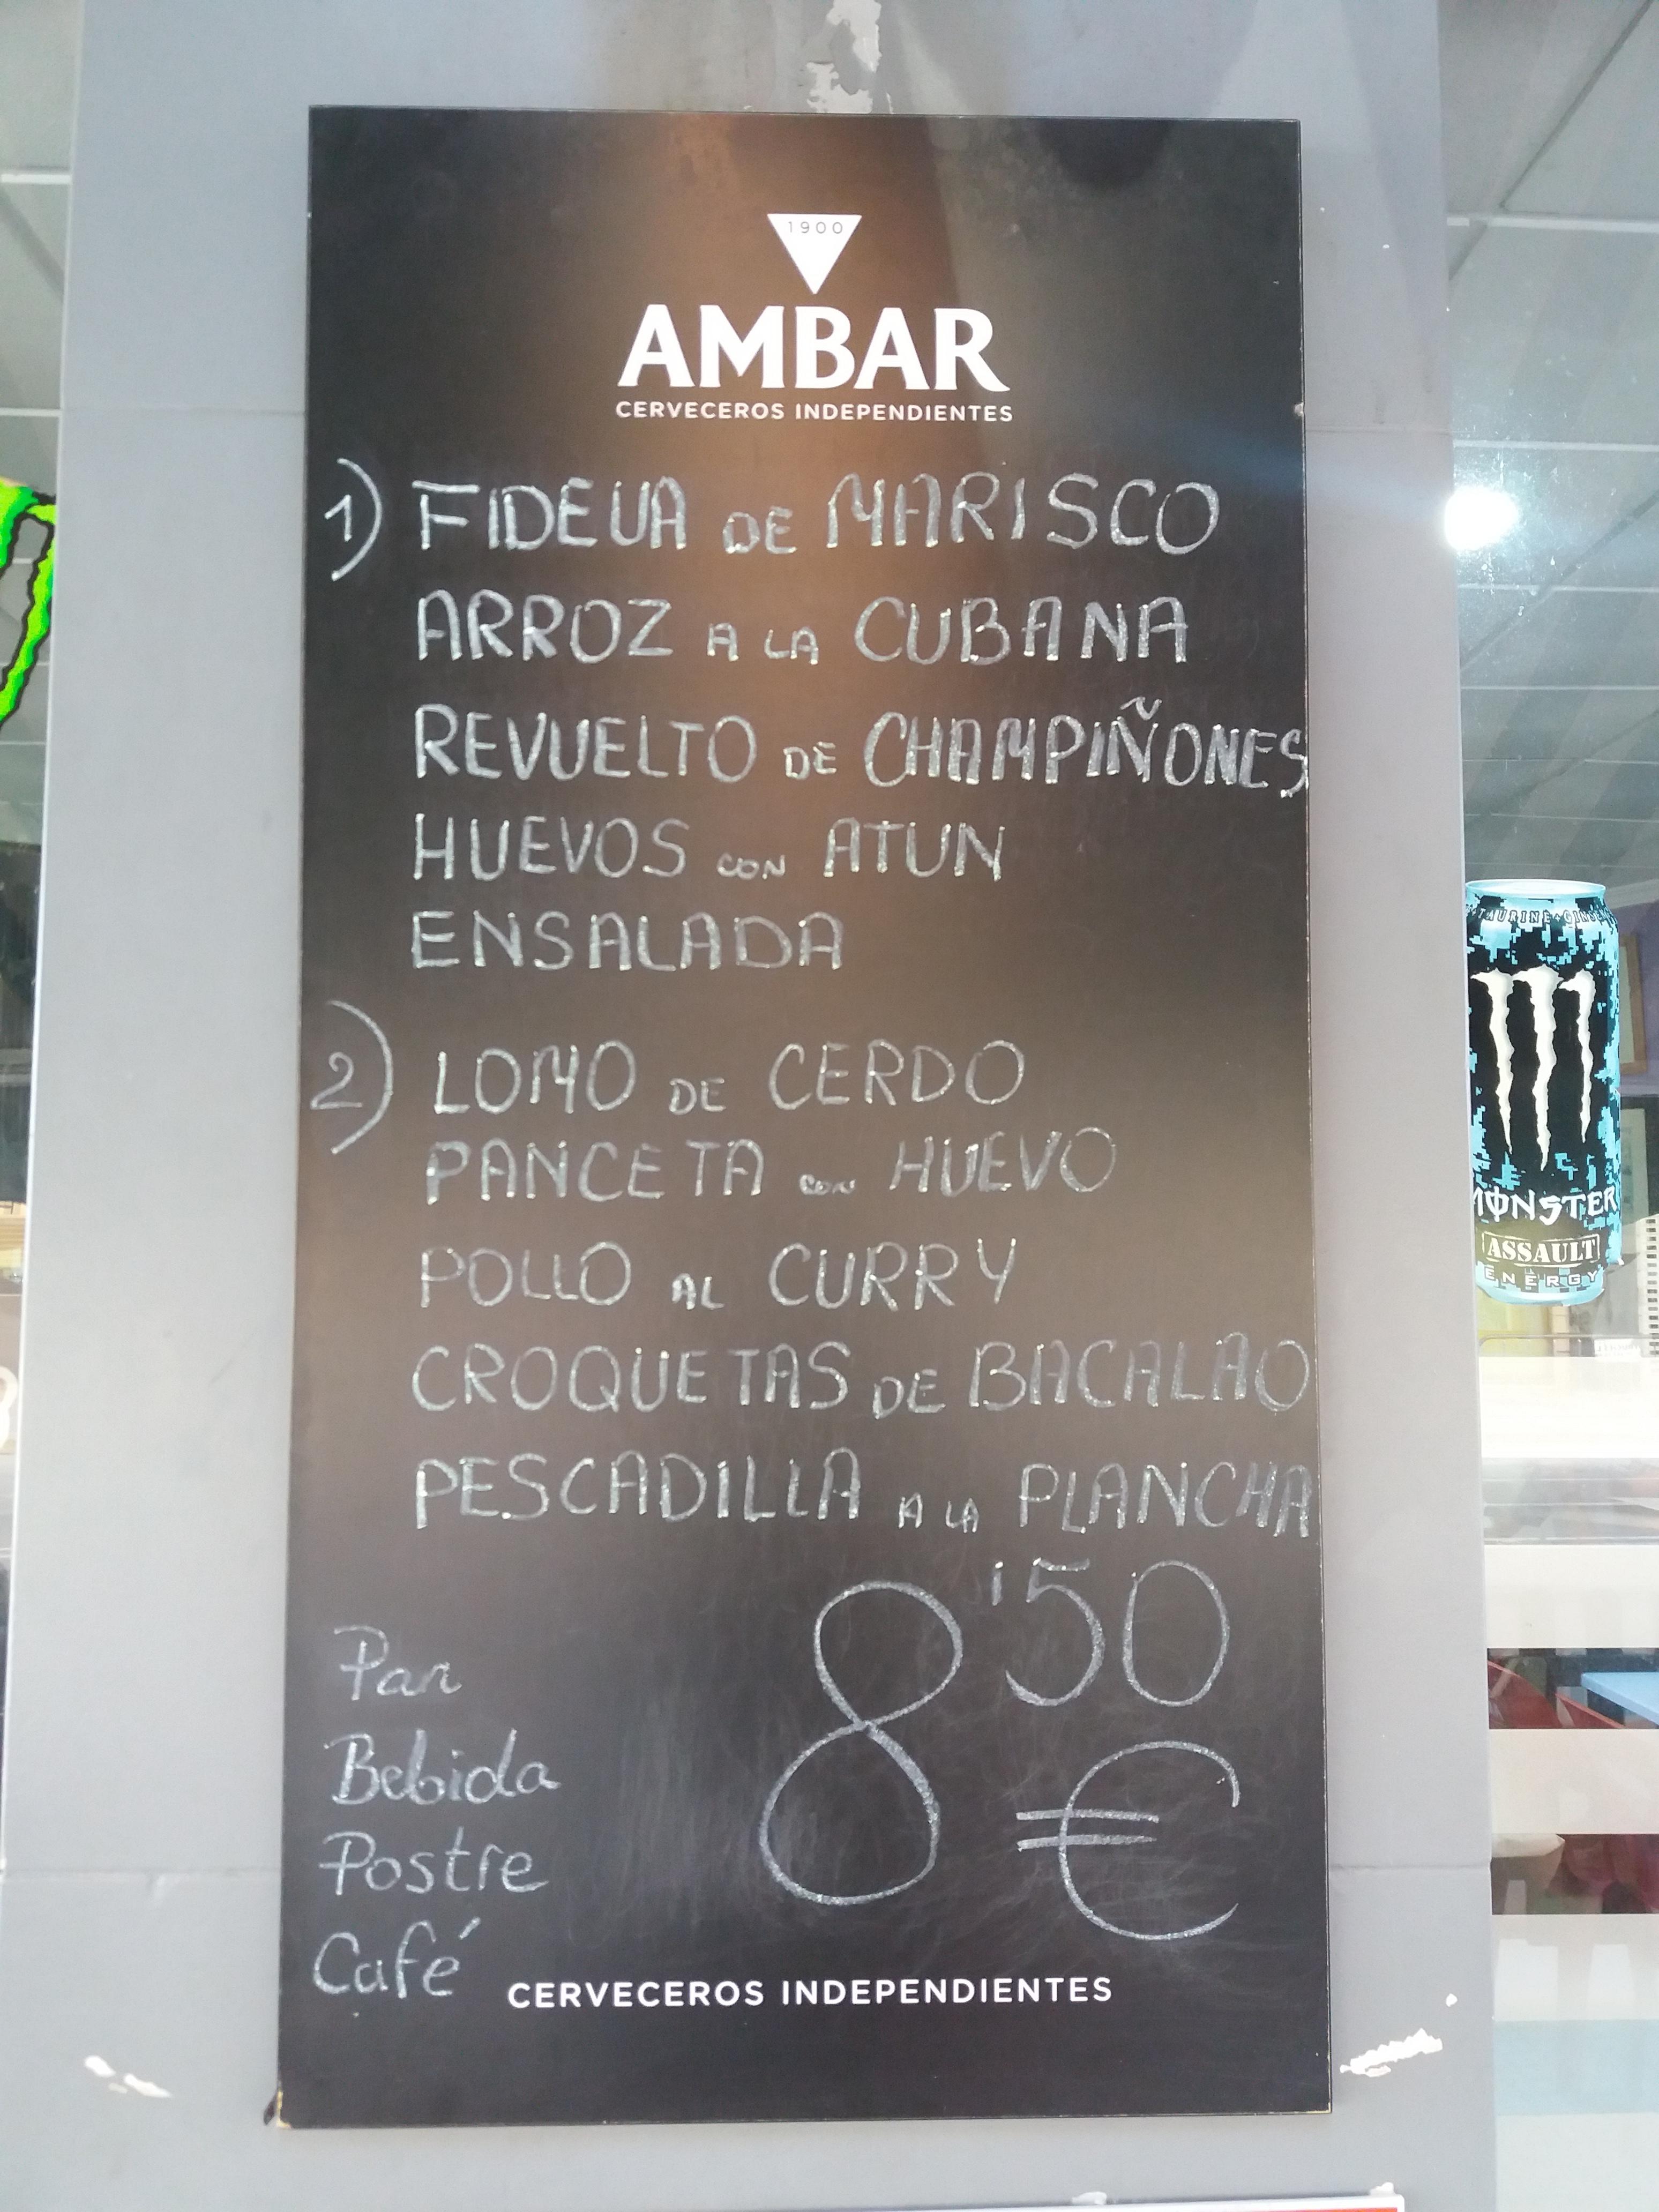 1900
AMBAR
CERVECEROS INDEPENDIENTES
1) FIDEUA DE MARISCO
ARROZ A LA CUBANA
REVUELTO DE CHAMPIÑONES
HUEVOS CON ATUN
ENSALADA
2) LOMO DE CERDO
PANCETA CON HUEVO
POLLO AL CURRY
CROQUETAS DE BACALAO
PESCADILLA A LA PLANCHA
8'50
€
Pan
Bebida
Postre
Café
CERVECEROS INDEPENDIENTES
TAURINE+
MONSTER
ASSAULT
ENERGY